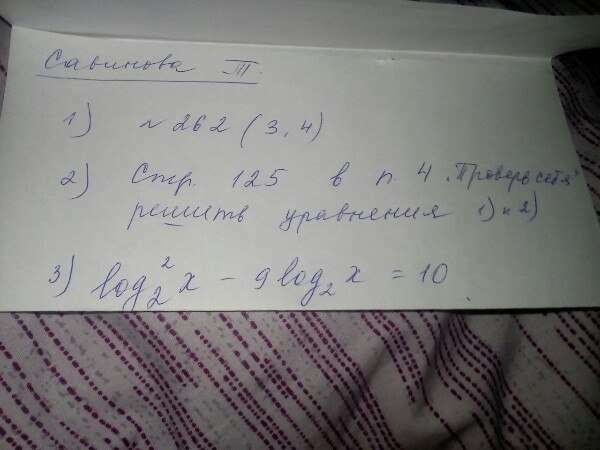 Савинова Т.
1) № 262 (3,4)
2) Стр. 125 в п 4 „Проверь себя"
решить уравнения 1) и 2)
3) log₂² x - 9 log₂ x = 10